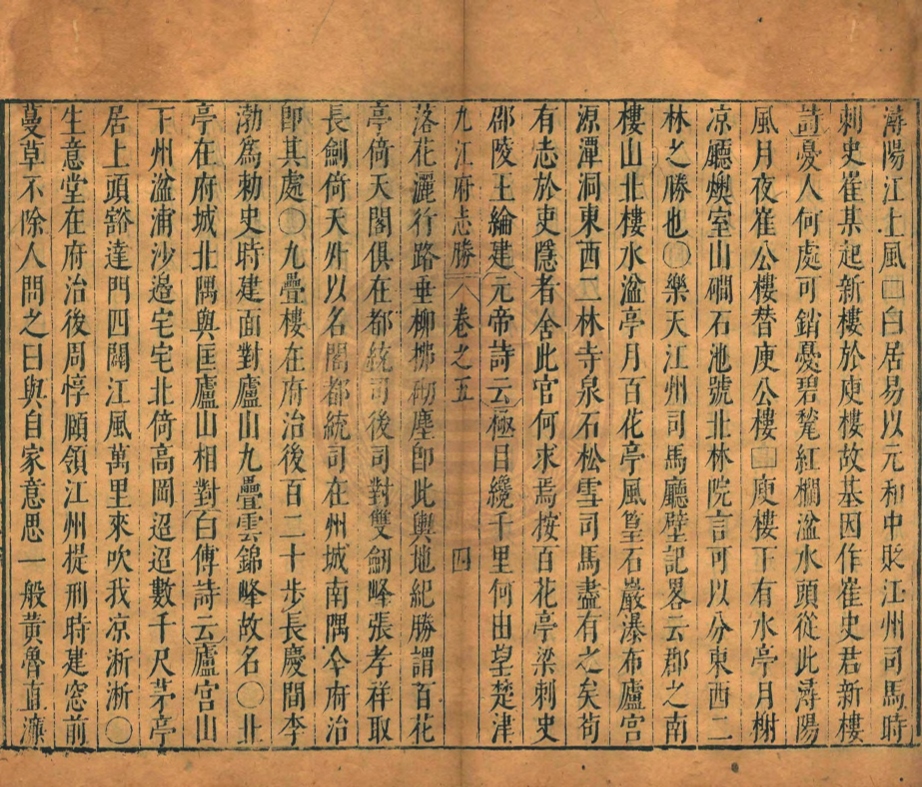 潯陽江上風□白居易以元和中貶江州司馬時
刺史崔某起新樓於庾樓故基因作崔史君新樓
詩憂人何處可銷憂碧甃紅欄湓水頭從此潯陽
風月夜崔公樓替庾公樓□庾樓下有水亭月榭
凉廳燠室山磵石池號北林院言可以分東西二
林之勝也〇樂天江州司馬廳壁記畧云郡之南
樓山北樓水湓亭月百花亭風篁石巖瀑布廬宮
源潭洞東西二林寺泉石松雪司馬盡有之矣苟
有志於吏隱者舍此官何求焉按百花亭梁刺史
邵陵王綸建元帝詩云極目纔千里何由望楚津
九江府志勝 卷之五 四
落花灑行路垂柳拂砌塵卽此輿地紀勝謂百花
亭倚天閣俱在都統司後司對雙劒峰張孝祥取
長劍倚天外以名閣都統司在州城南隅今府治
卽其處〇九疊樓在府治後百二十步長慶間李
渤爲勅史時建面對廬山九疊雲錦峰故名〇北
亭在府城北隅與匡廬山相對白傅詩云廬宮山
下州湓浦沙邊宅宅北倚高岡迢迢數千尺茅亭
居上頭豁達門四闢江風萬里來吹我凉淅淅〇
生意堂在府治後周惇願領江州提刑時建窓前
蔓草不除人問之曰與自家意思一般黄魯直濂